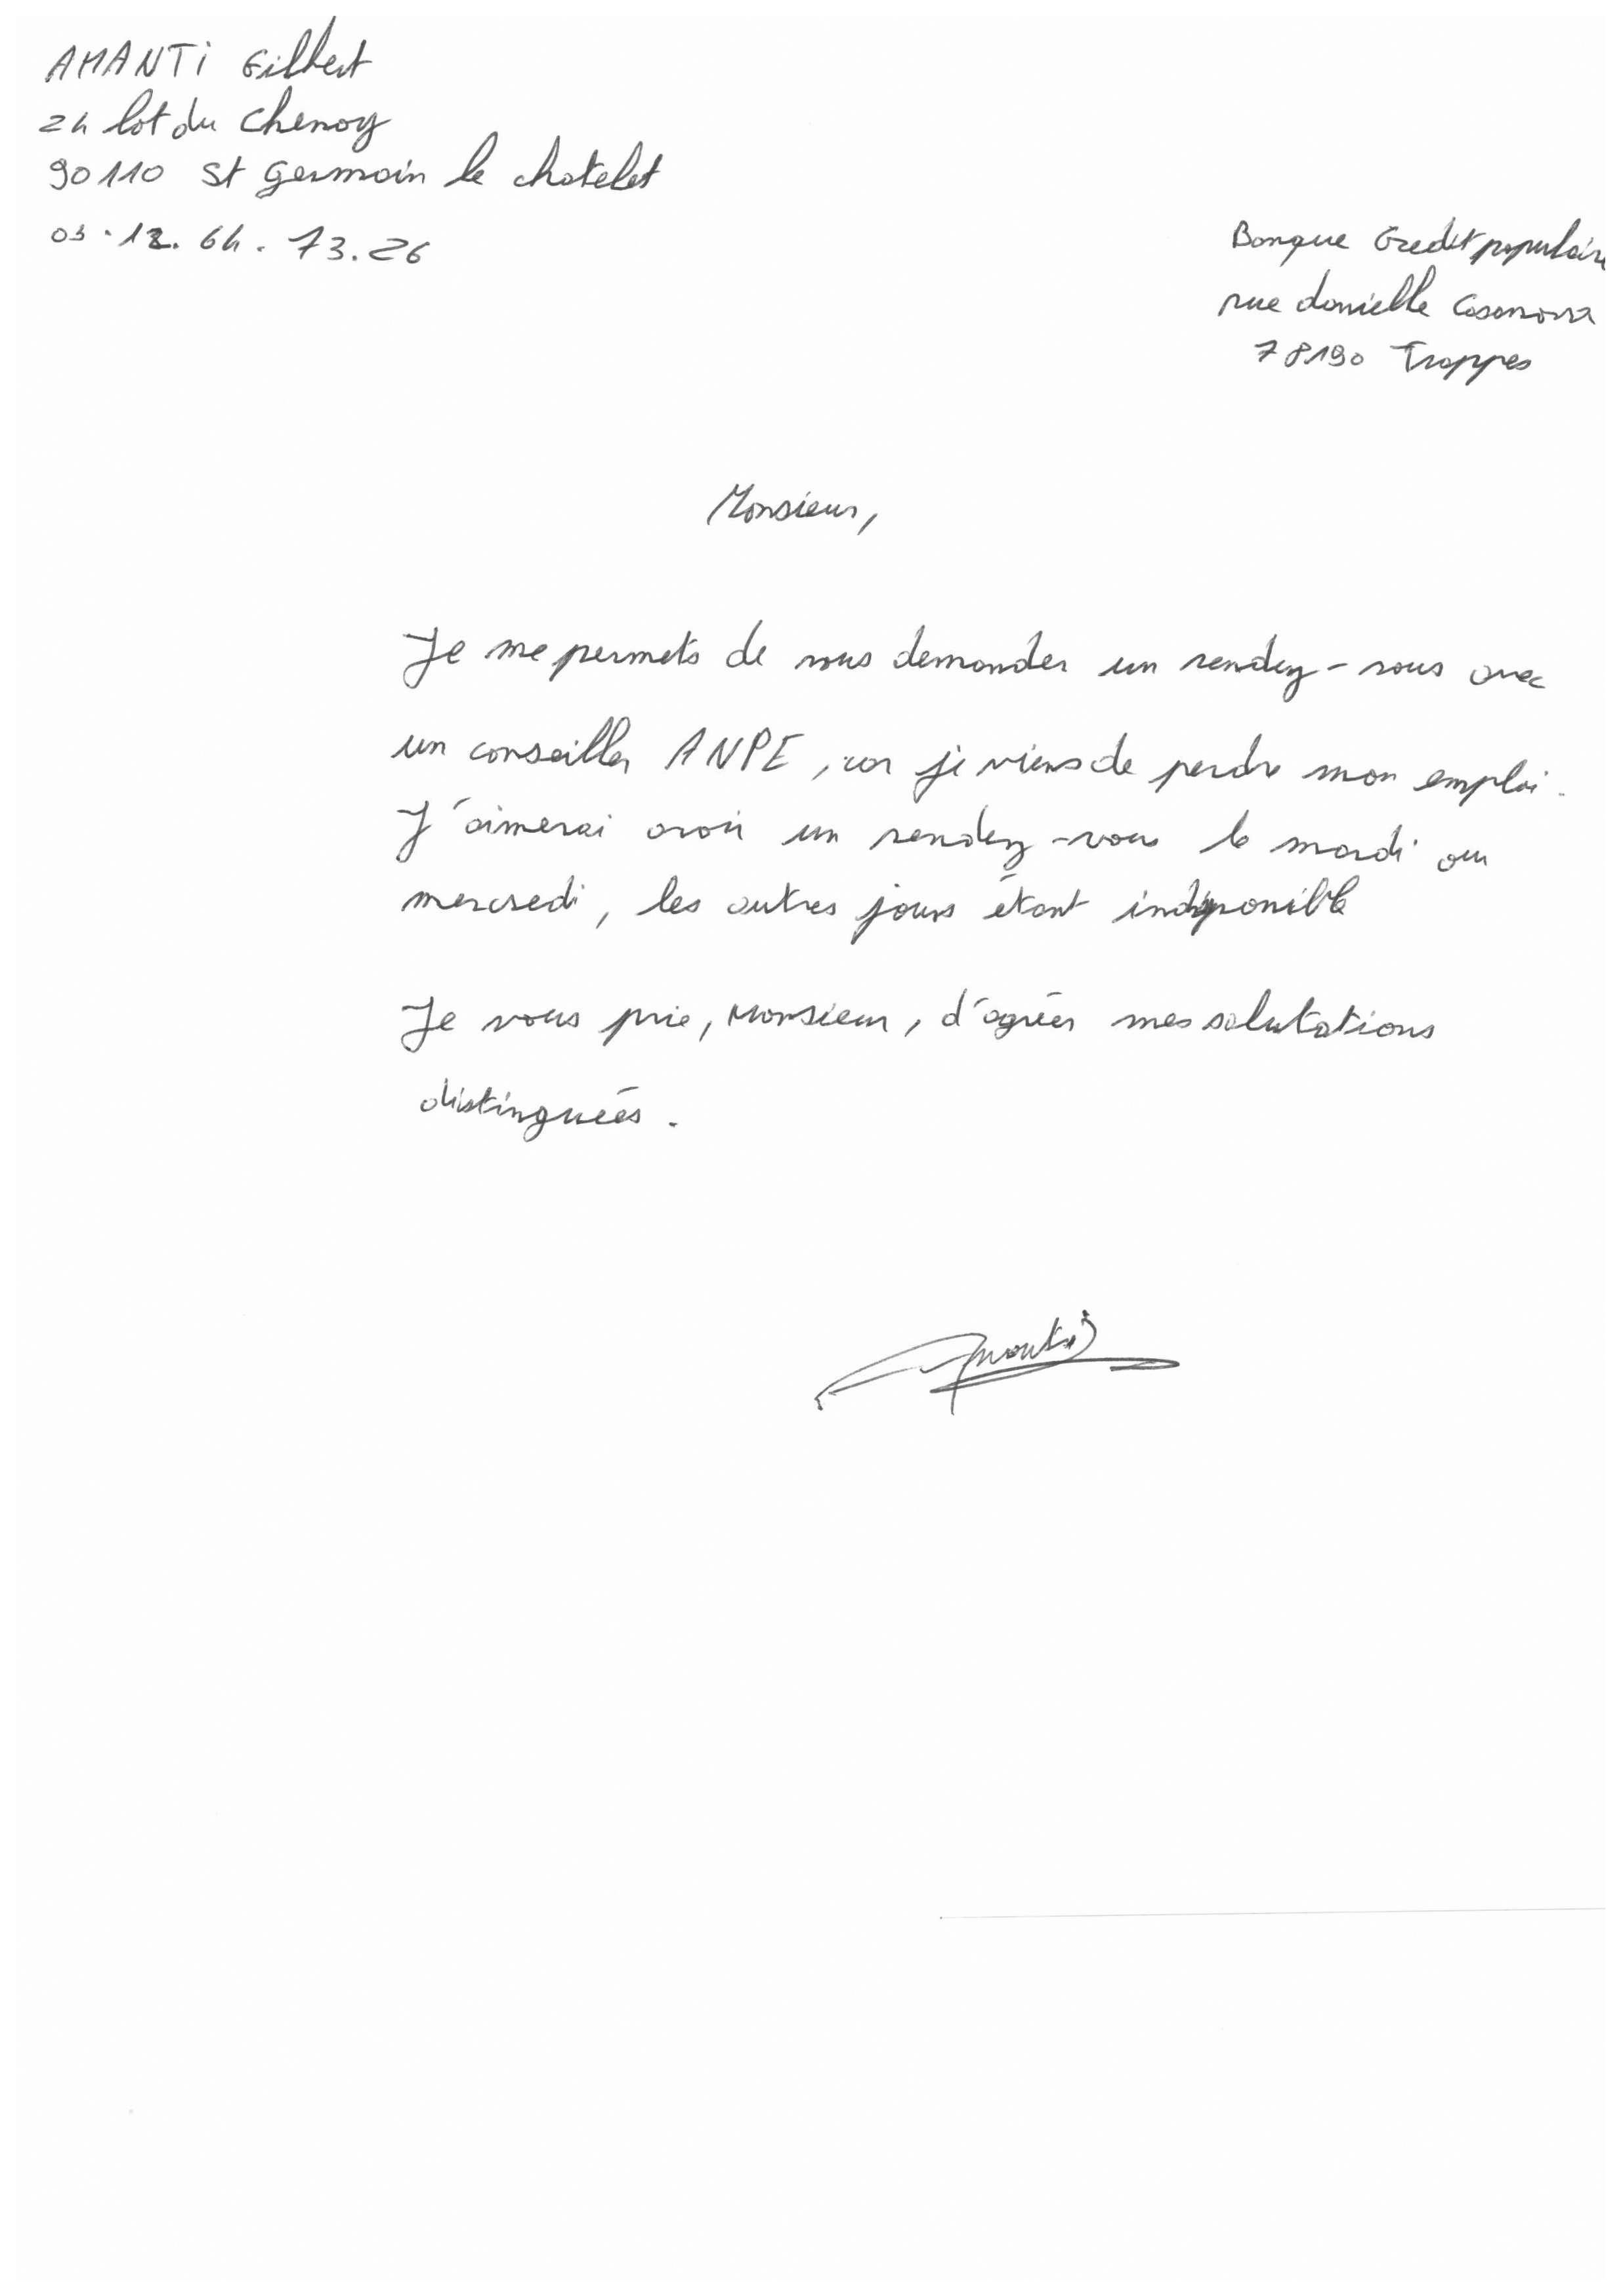 AMANTI Gilbert
24 lot du Chenoy
90110 St Germain le chatelet
03.12.64.73.26
Banque Credit populaire
rue danielle Casanova
78190 Trappes
Monsieur,
Je me permets de vous demander un rendez-vous avec
un conseiller ANPE, car je viens de perdre mon emploi.
J'aimerai avoir un rendez-vous le mardi ou
mercredi, les autres jours étant indisponible
Je vous prie, Monsieur, d'agréer mes salutations
distinguées.
Amanti